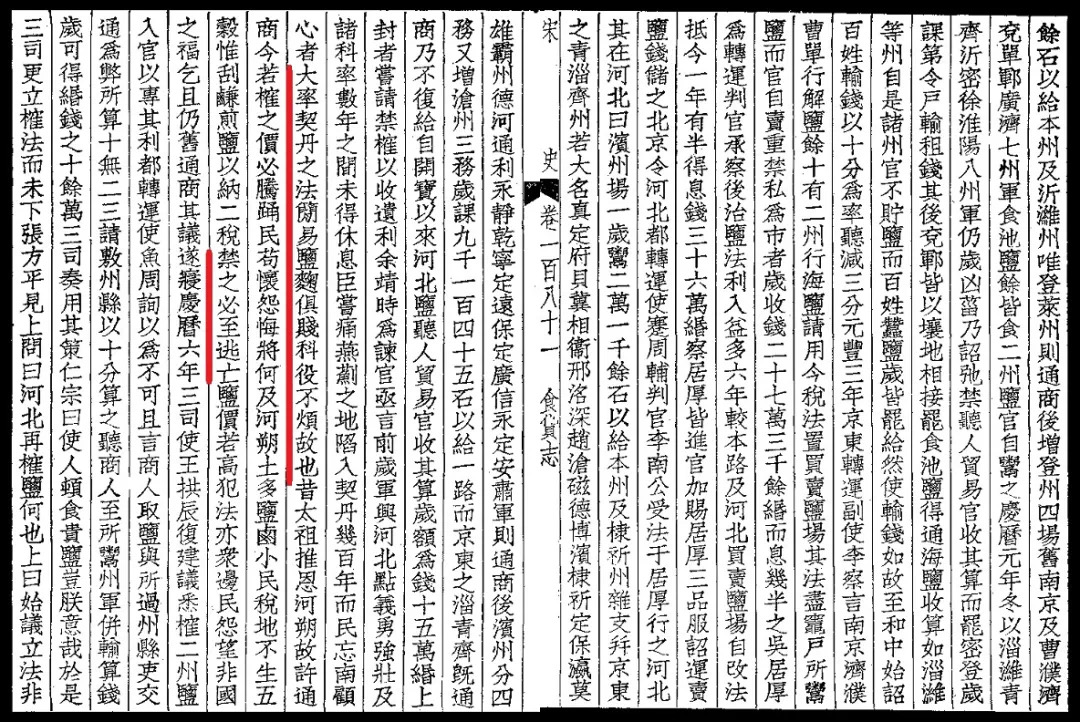 餘石以給本州及沂濰州唯登萊州則通商後增登州四場舊南京及曹濮濟
兗單鄆廣濟七州軍食池鹽餘皆食二州鹽官自鬻之慶曆元年冬以淄濰青
齊沂密徐淮陽八州軍仍歲凶菑乃詔弛禁聽人貿易官收其算而罷密登歲
課第令戶輸租錢其後兗鄆皆以壤地相接罷食池鹽得通海鹽收算如淄濰
等州自是諸州官不貯鹽而百姓蠶鹽歲皆罷給然使輸錢如故至和中始詔
百姓輸錢以十分爲率聽減三分元豐三年京東轉運副使李察言南京濟濮
曹單行解鹽餘十有二州行海鹽請用今稅法置買賣鹽場其法盡竈戶所鬻
鹽而官自賣重禁私爲市者歲收錢二十七萬三千餘緡而息幾半之吳居厚
爲轉運判官承察後治鹽法利入益多六年較本路及河北買賣鹽場自改法
抵今一年有半得息錢三十六萬緡察居厚皆進官加賜居厚三品服詔運賣
鹽錢儲之北京令河北都轉運使蹇周輔判官李南公受法于居厚行之河北
其在河北曰濱州場一歲鬻二萬一千餘石以給本州及棣祈州雜支幷京東
之青淄齊州若大名真定府貝冀相衞邢洺深趙滄磁德博濱棣祈定保瀛莫
宋史 卷一百八十一 食貨志
雄霸州德河通利永靜乾寧定遠保定廣信永定安肅軍則通商後濱州分四
務又增滄州三務歲課九千一百四十五石以給一路而京東之淄青齊既通
商乃不復給自開寶以來河北鹽聽人貿易官收其算歲額爲錢十五萬緡上
封者嘗請禁榷以收遺利余靖時爲諫官亟言前歲軍興河北點義勇強壯及
諸科率數年之間未得休息臣嘗痛燕薊之地陷入契丹幾百年而民忘南顧
心者大率契丹之法簡易鹽麴俱賤科役不煩故也昔太祖推恩河朔故許通
商今若榷之價必騰踊民苟懷怨悔將何及河朔土多鹽鹵小民稅地不生五
穀惟刮鹻煎鹽以納二稅禁之必至逃亡鹽價若高犯法亦衆邊民怨望非國
之福乞且仍舊通商其議遂寢慶曆六年三司使王拱辰復建議悉榷二州鹽
入官以專其利都轉運使魚周詢以爲不可且言商人取鹽與所過州縣吏交
通爲弊所算十無二三請敷州縣以十分算之聽商人至所鬻州軍併輸算錢
歲可得緡錢之十餘萬三司奏用其策仁宗曰使人頓食貴鹽豈朕意哉於是
三司更立榷法而未下張方平見上問曰河北再榷鹽何也上曰始議立法非